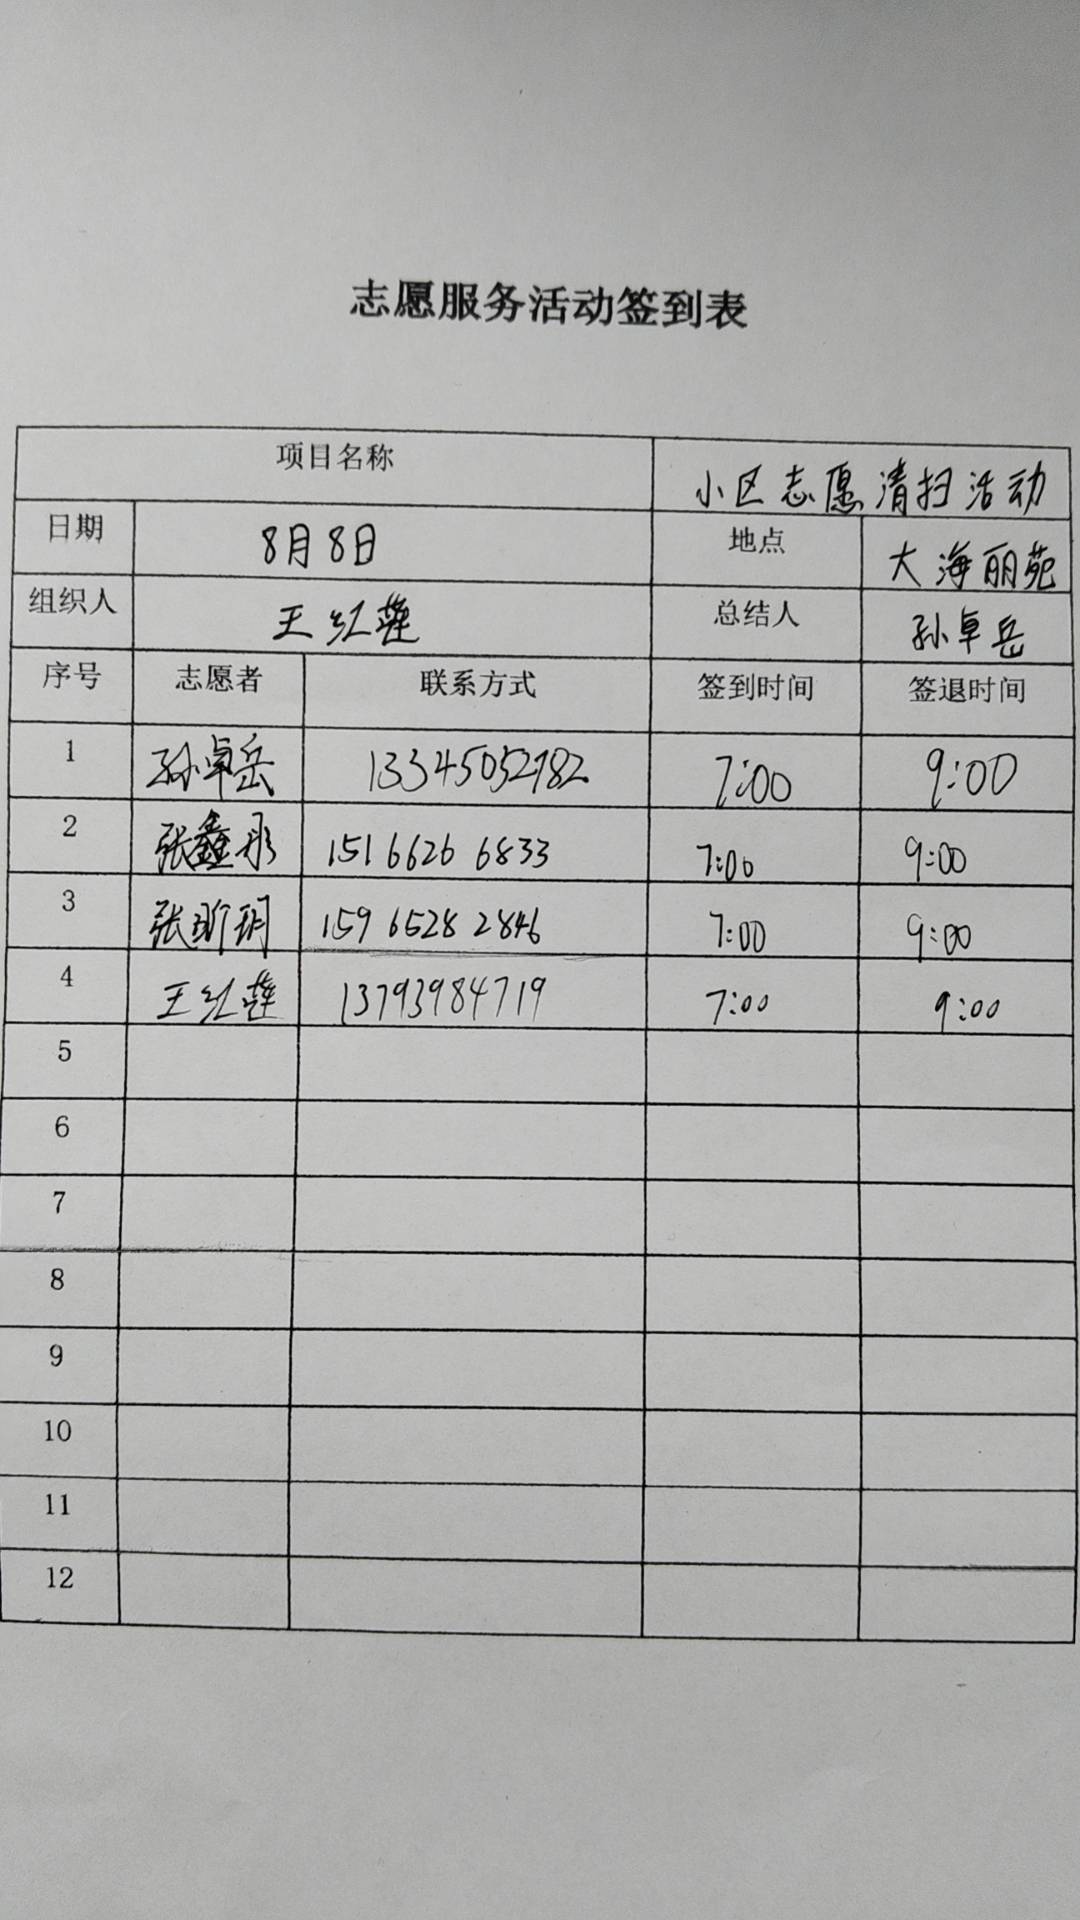 志愿服务活动签到表
项目名称 小区志愿清扫活动
日期 8月8日 地点 大海丽苑
组织人 王红莲 总结人 孙卓岳
序号 志愿者 联系方式 签到时间 签退时间
1 孙卓岳 13345052782 7:00 9:00
2 张鑫彤 151 6626 6833 7:00 9:00
3 张昕玥 159 6528 2846 7:00 9:00
4 王红莲 13793984719 7:00 9:00
5
6
7
8
9
10
11
12